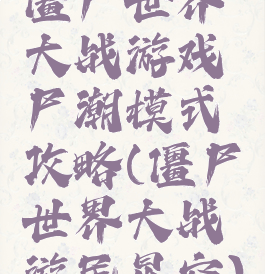 僵尸世界
大战游戏
尸潮模式
攻略(僵尸
世界大战
游民星空)